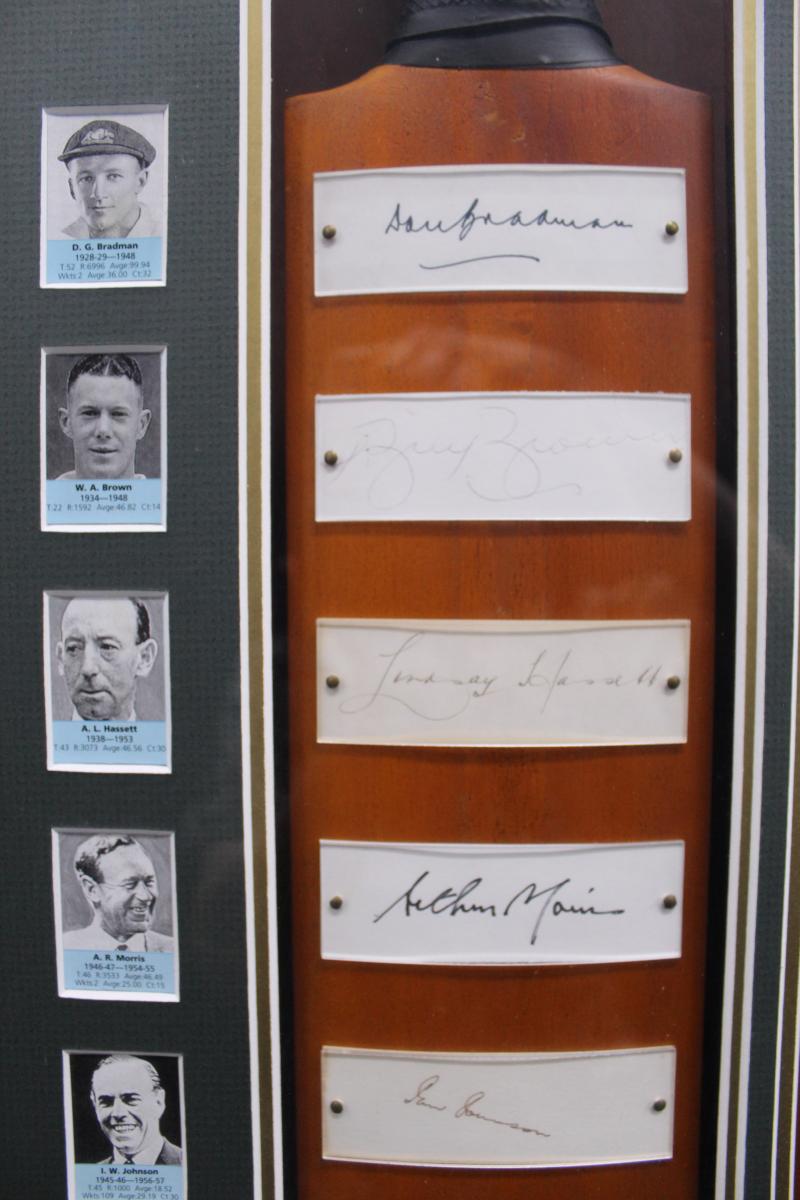 D. G. Bradman
1928-29—1948
T:52 R:6996 Avge:99.94
Wkts:2 Avge:36.00 Ct:32
Don Bradman
W. A. Brown
1934—1948
T:22 R:1592 Avge:46.82 Ct:14
Bill Brown
A. L. Hassett
1938—1953
T:43 R:3073 Avge:46.56 Ct:30
Lindsay Hassett
A. R. Morris
1946-47—1954-55
T:46 R:3533 Avge:46.49
Wkts:2 Avge:25.00 Ct:15
Arthur Morris
I. W. Johnson
1945-46—1956-57
T:45 R:1000 Avge:18.52
Wkts:109 Avge:29.19 Ct:30
Ian Johnson